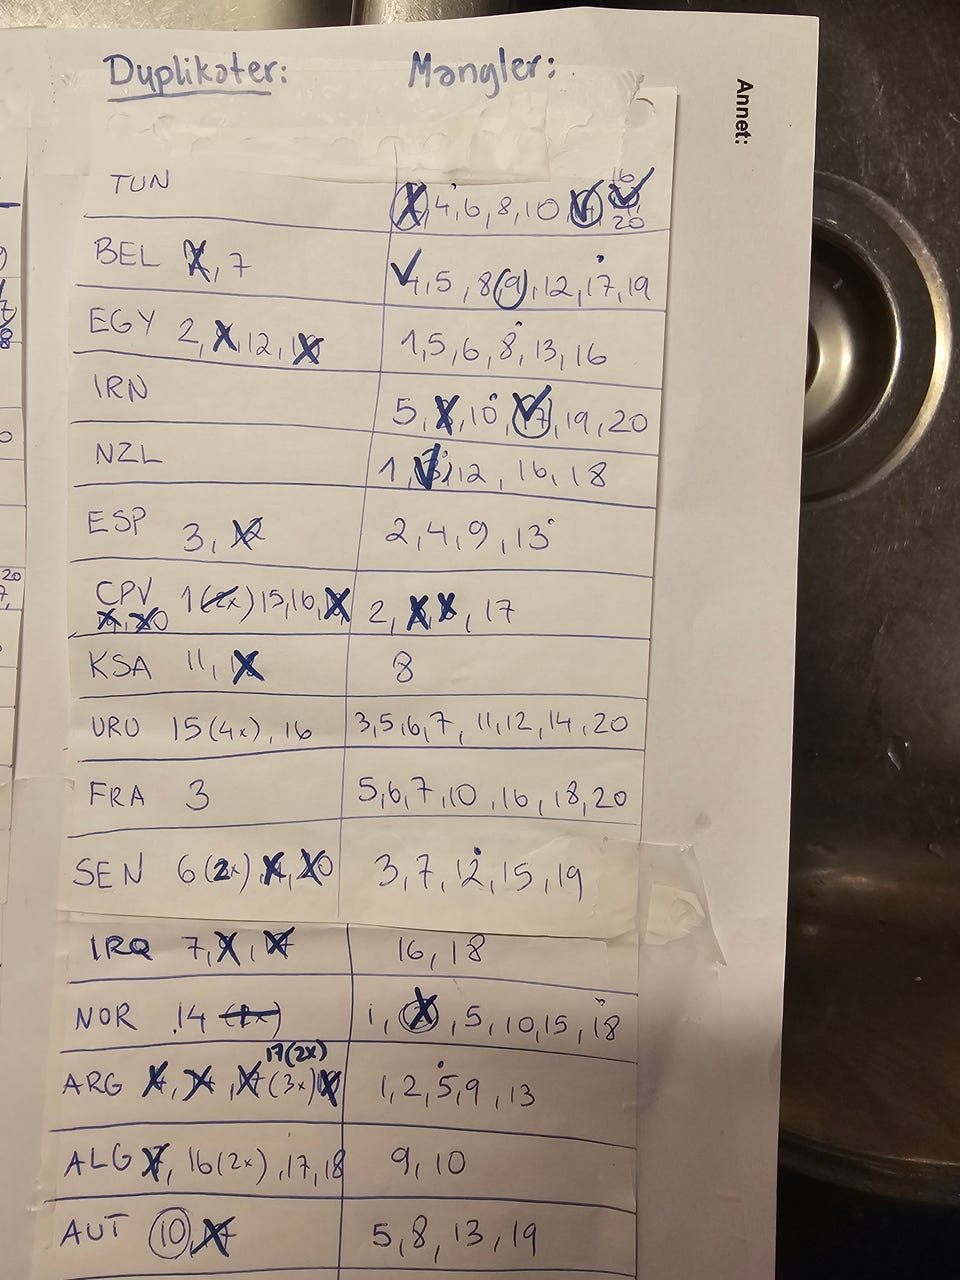 Duplikater: Mangler:
Annet:
TUN 4, 6, 8, 10 16
20
BEL , 7 , 5, 8, 9, 12, 17, 19
EGY 2, , 12, 1, 5, 6, 8, 13, 16
IRN 5, , 10, 17, 19, 20
NZL 1, , 12, 16, 18
ESP 3, 12 2, 4, 9, 13
CPV 1 (2x) 15, 16, 2, , 17
, 20
KSA 11, 8
URU 15 (4x), 16 3, 5, 6, 7, 11, 12, 14, 20
FRA 3 5, 6, 7, 10, 16, 18, 20
SEN 6 (2x) , 20 3, 7, 12, 15, 19
IRQ 7, , 16, 18
NOR 14 1, , 5, 10, 15, 18
17 (2x)
ARG , , (3x) 1, 2, 5, 9, 13
ALG , 16 (2x), 17, 18 9, 10
AUT 10, 5, 8, 13, 19